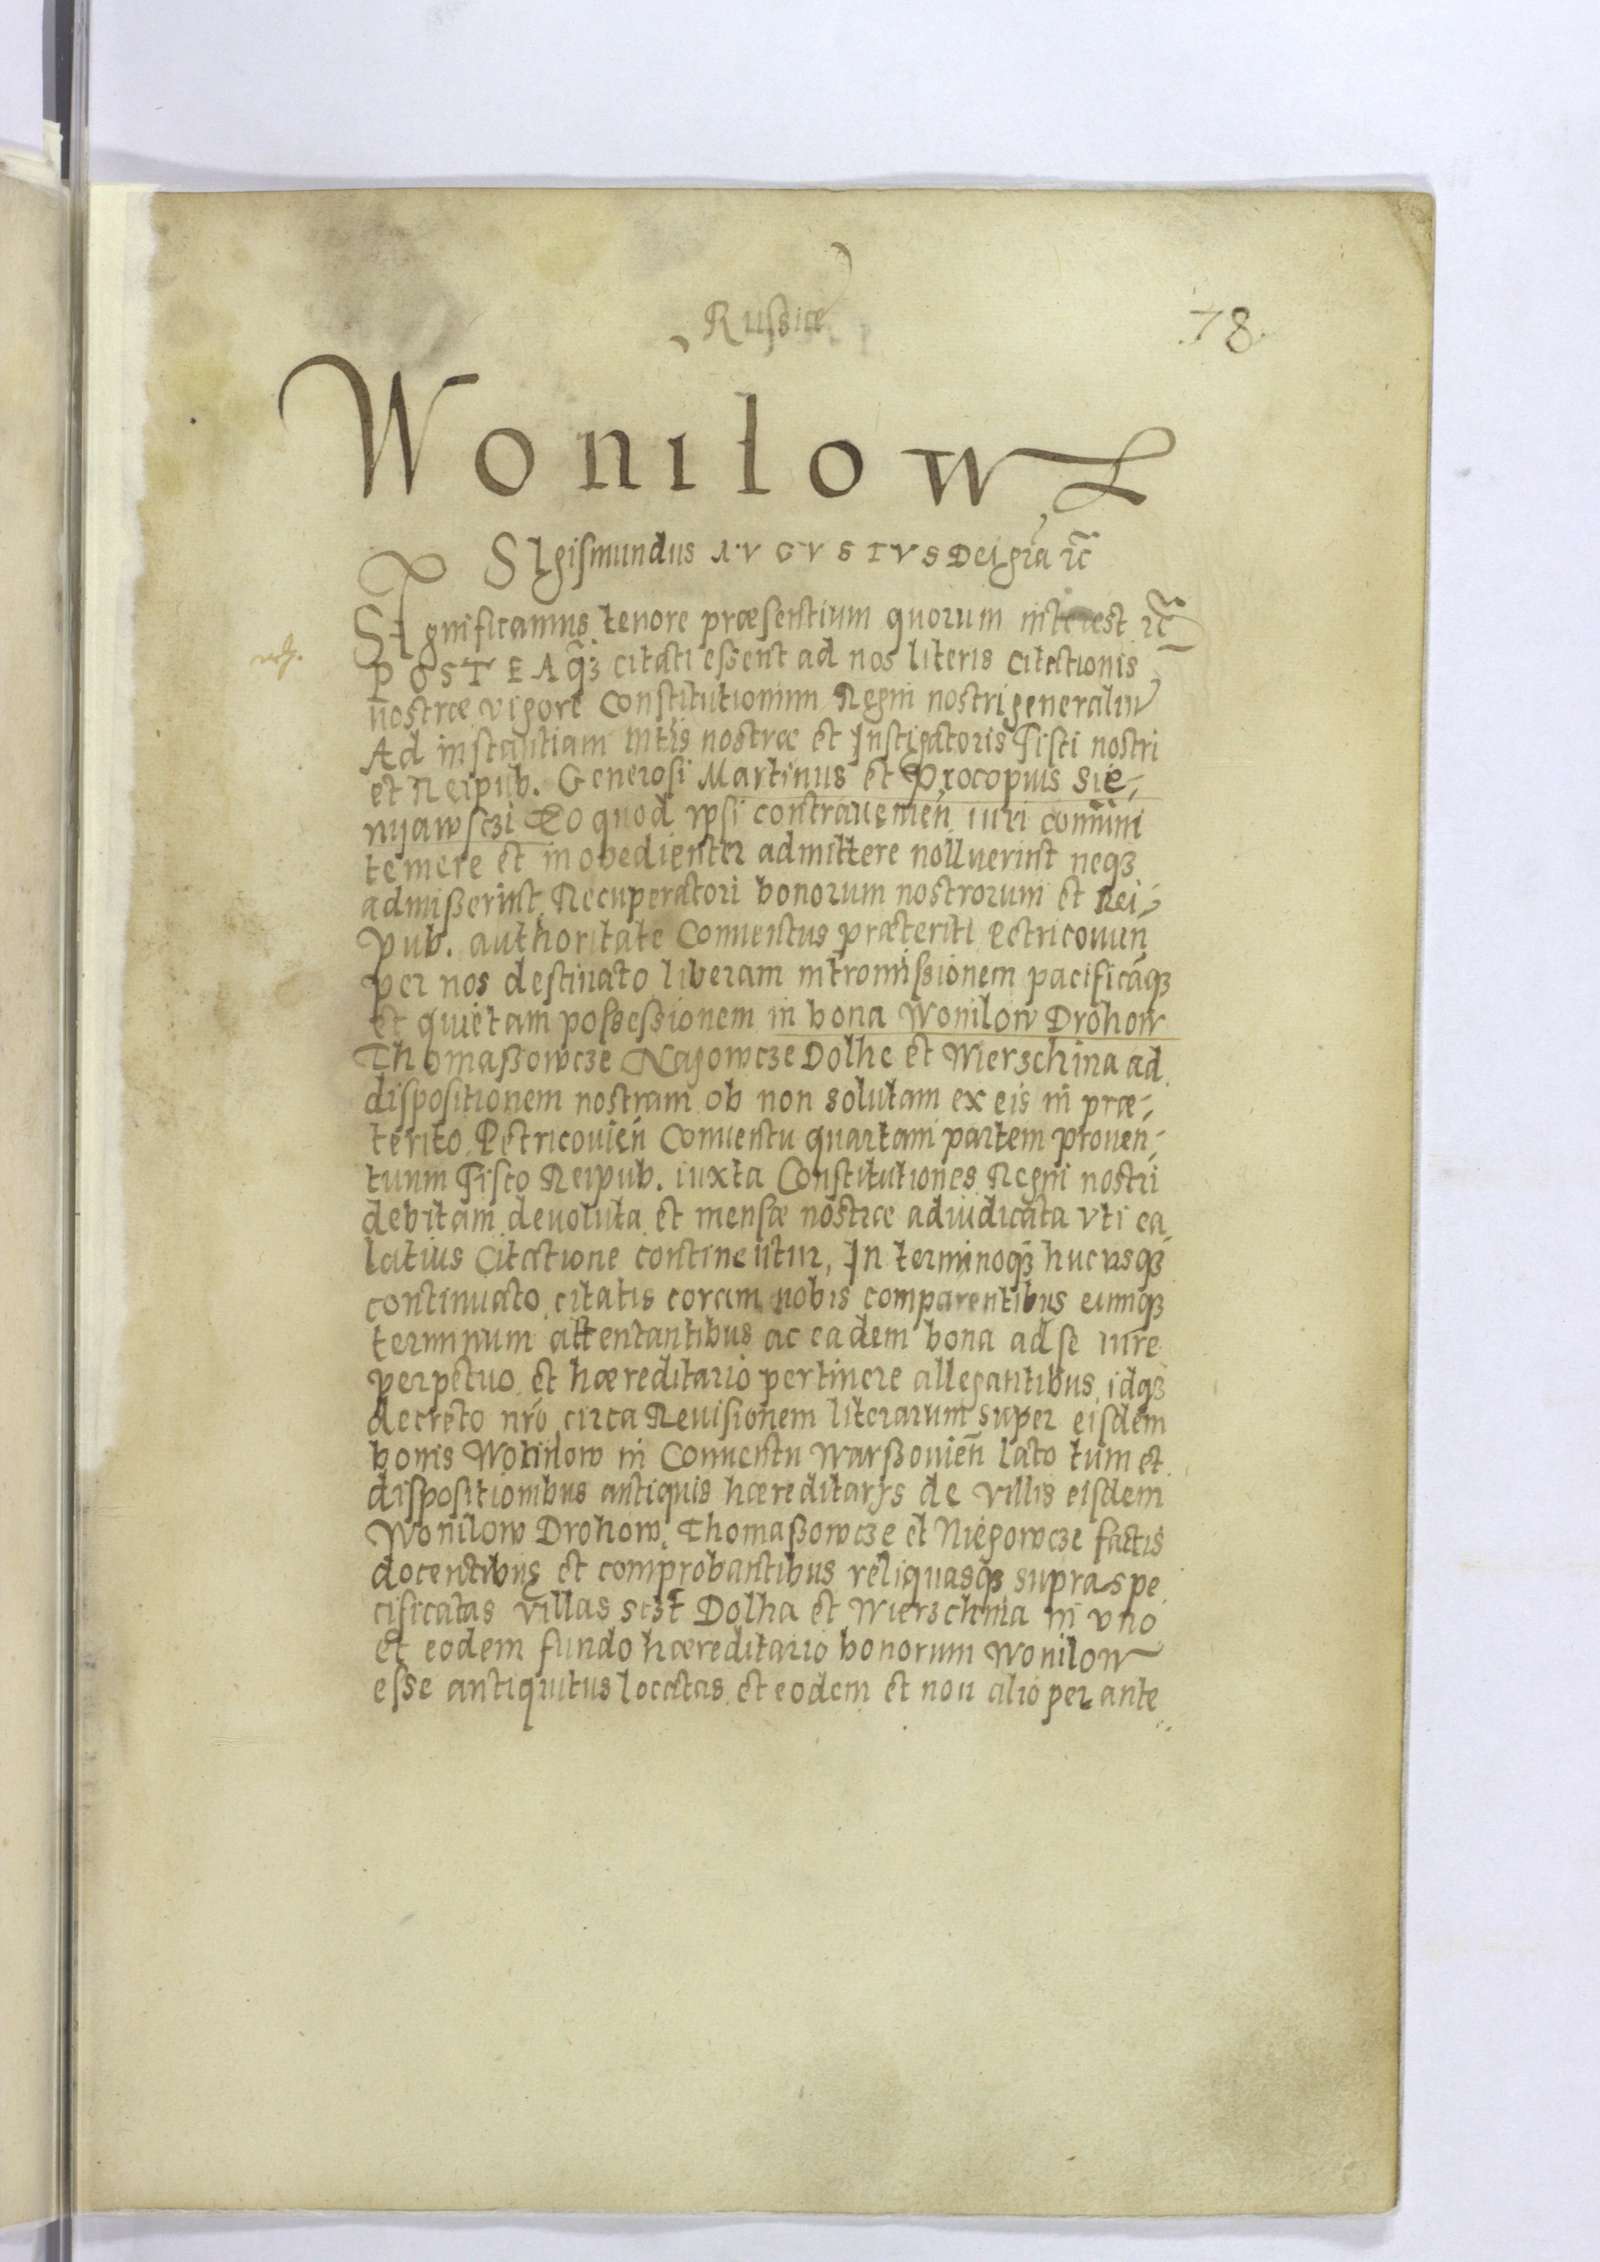 Russiæ
78.
Wonilow
SIgismundus AVGVSTVS Dei gr̃a ꝛc̃
SIgnificamus tenore præsentium quorum interest ꝛc̃
POSTEAq̃ꝫ citati essent ad nos literis citationis
nostræ vigore Constitutionum Regni nostri generaliu
Ad instantiam Mtis nostræ et Instigatoris Fisci nostri
et Reipub. Generosi Martinus et Procopius Sie,-
nyawsczi Eo quod ipsi contravenien̄ iuri com̄uni
temere et inobedienter admittere nolluerint neqꝫ
admißerint Recuperatori bonorum nostrorum et Rei,-
pub. authoritate Conuentus præteriti Petricouien̄
per nos destinato liberam intromissionem pacificāqꝫ
et quietam possessionem in bona Wonilow Drohow
Thomaßowcze Nagowcze Dolhe et Wierzchina ad
dispositionem nostram ob non solutam ex eis in præ,-
terito Petricouien̄ Conuentu quartam partem prouen,-
tuum Fisco Reipub. iuxta Constitutiones Regni nostri
debitam deuoluta et mensæ nostræ adiudicata vti ea
latius Citatione continentur, In terminoqꝫ hucusqꝫ
continuato citatis coram nobis comparentibus eumqꝫ
terminum attentantibus ac eadem bona ad se iure
perpetuo et hæreditario pertinere allegantibus idqꝫ
decreto nr̃o circa Reuisionem literarum super eisdem
bonis Wonilow in Conuentu Warßouien̄ lato tum et
dispositionibus antiquis hæreditarijs de villis eisdem
Wonilow Drohow, Thomaßowcze et Niegowcze factis
docentibus et comprobantibus reliquasqꝫ supra spe
cificatas villas sczt̃ Dolha et Wierzchnia in vno
et eodem fundo hæreditario bonorum Wonilow
esse antiquitus locatas et eodem et non alio per ante